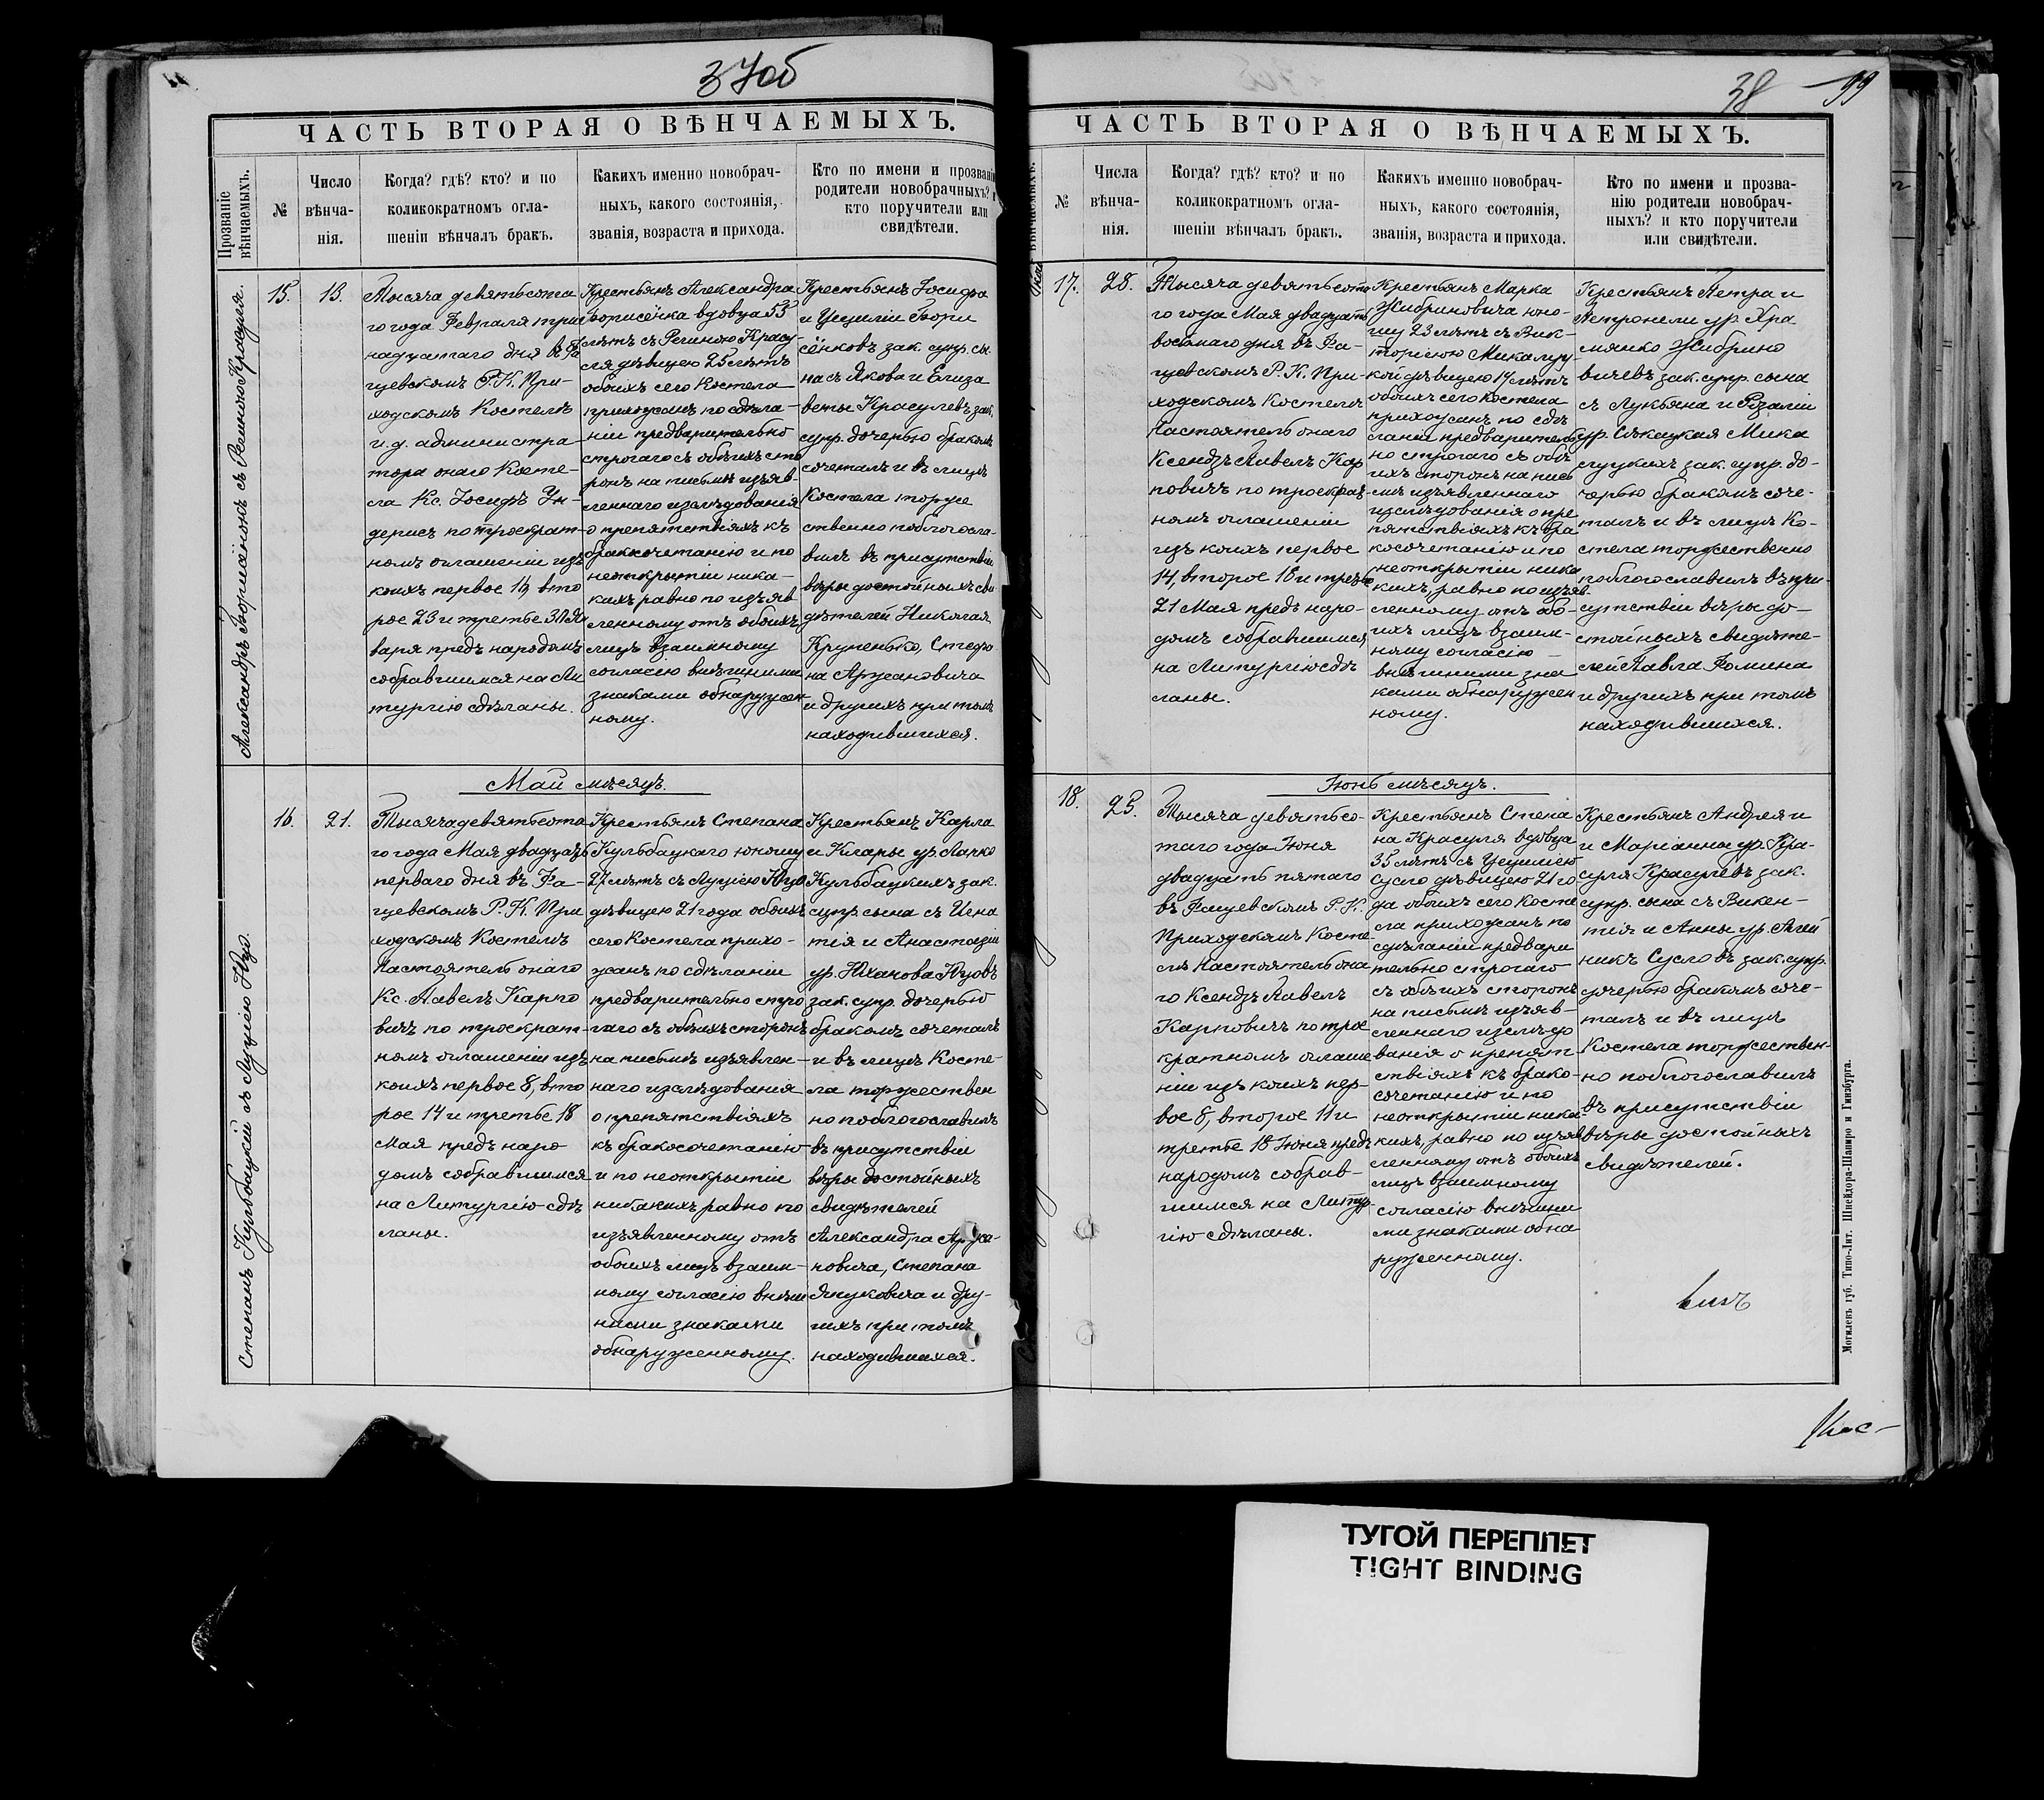 37об
ЧАСТЬ ВТОРАЯ О ВѢНЧАЕМЫХЪ.
Прозваніе вѣнчаемыхъ.
№
Число вѣнча-
нія.
Когда? гдѣ? кто? и по
коликократномъ огла-
шеніи вѣнчалъ бракъ.
Какихъ именно новобрач-
ныхъ, какого состоянія,
званія, возраста и прихода.
Кто по имени и прозванію
родители новобрачныхъ? и
кто поручители или
свидѣтели.
15.
13.
Тысяча девятьсота
го года Февраля три
надцатаго дня въ Фа
щевскомъ Р. К. При-
ходскомъ Костелѣ
и. д. администра-
тора онаго Косте-
ла Кс. Іосифъ Ун-
дерисъ по троекрат-
номъ оглашеніи изъ
коихъ первое 16, вто
рое 23 и третье 30 Ян
варя предъ народомъ
собравшимся на Ли
тургію сдѣланы.
Крестьянъ Александра
Борисёнка вдовца 53
лѣтъ съ Региною Красу-
ля дѣвицею 25 лѣтъ
обоихъ сего Костела
прихожанъ по сдѣла-
ніи предварительно
строгаго съ обѣихъ сто
ронъ на письмѣ изъяв-
леннаго изслѣдованія
о препятствіяхъ къ
бракосочетанію и по
неоткрытіи ника-
кихъ равно по изъяв
ленному отъ обоихъ
лицъ взаимному
согласію внѣшними
знаками обнаружен
ному.
Крестьянъ Іосифа
и Цециліи Бори
сёнковъ зак. супр. сы
на съ Якова и Елиза
веты Красулевъ зак.
супр. дочерью бракомъ
сочеталъ и въ лицѣ
Костела торже
ственно поблагосла-
вилъ въ присутствіи
вѣры достойныхъ сви
дѣтелей Николая
Крупенько, Стефа
на Аржановича
и другихъ при томъ
находившихся.
Май мѣсяцъ.
Степанъ Кульбацкій съ Луціею Нуо.
16.
21.
Тысяча девятьсота
го года Мая двадцать
перваго дня въ Фа-
щевскомъ Р. К. При
ходскомъ Костелѣ
Настоятель онаго
Кс. Павелъ Карпо
вичъ по троекрат-
номъ оглашеніи изъ
коихъ первое 8, вто
рое 14 и третье 18
Мая предъ наро
домъ собравшимся
на Литургію сдѣ
ланы.
Крестьянъ Степана
Кульбацкаго юношу
27 лѣтъ съ Луціею Нуо
дѣвицею 21 года обоихъ
сего Костела прихо-
жанъ по сдѣланіи
предварительно стро
гаго съ обѣихъ сторонъ
на письмѣ изъявлен-
наго изслѣдованія
о препятствіяхъ
къ бракосочетанію
и по неоткрытіи
никакихъ равно по
изъявленному отъ
обоихъ лицъ взаим-
ному согласію внѣш
ними знаками
обнаруженному.
Крестьянъ Карла
и Клары ур. Ларко
Кульбацкихъ зак.
супр. сына съ Игна
тія и Анастазіи
зак. супр. дочерью
бракомъ сочеталъ
и въ лицѣ Косте-
ла торжествен
но поблагославилъ
въ присутствіи
вѣры достойныхъ
свидѣтелей
Александра Аржа-
новича, Степана
Януковича и дру-
гихъ при томъ
находившихся.
38
99
ЧАСТЬ ВТОРАЯ О ВѢНЧАЕМЫХЪ.
№
Числа
вѣнча-
нія.
Когда? гдѣ? кто? и по
коликократномъ огла-
шеніи вѣнчалъ бракъ.
Какихъ именно новобрач-
ныхъ, какого состоянія,
званія, возраста и прихода.
Кто по имени и прозва-
нію родители новобрач-
ныхъ? и кто поручители
или свидѣтели.
17.
28.
Тысяча девятьсота
го года Мая двадцать
восьмаго дня въ Фа-
щевскомъ Р. К. При-
ходскомъ Костелѣ
Настоятель онаго
Ксендзъ Павелъ Кар
повичъ по троекрат-
номъ оглашеніи
изъ коихъ первое
14, второе 18 и третье
21 Мая предъ наро-
домъ собравшимся
на Литургію сдѣ
ланы.
Крестьянъ Марка
Жибриновича юно-
шу 23 лѣтъ съ Вик-
торіею Микалуц-
кой дѣвицею 17 лѣтъ
обоихъ сего Костела
прихожанъ по сдѣ
ланіи предваритель
но строгаго съ обѣ
ихъ сторонъ на пись
мѣ изъявленнаго
изслѣдованія о пре
пятствіяхъ къ бра
косочетанію и по
неоткрытіи ника
кихъ, равно по изъяв-
ленному отъ обо-
ихъ лицъ взаим-
ному согласію
внѣшними зна
ками обнаружен
ному.
Крестьянъ Петра и
Петронели ур. Хра
мянко Жибрино
вичевъ зак. супр. сына
съ Лукьяна и Розаліи
ур. Сѣкацкая Мика
луцкихъ зак. супр. до-
черью бракомъ соче-
талъ и въ лицѣ Ко-
стела торжественно
поблагославилъ въ при-
сутствіи вѣры до-
стойныхъ свидѣте-
лей Павла Фомина
и другихъ при томъ
находившихся.
Іюнь мѣсяцъ.
18.
25.
Тысяча девятьсо-
таго года Іюня
двадцать пятаго
въ Фащевскомъ Р. К.
Приходскомъ Косте
лѣ Настоятель она
го Ксендзъ Павелъ
Карповичъ по трое
кратномъ оглаше
ніи изъ коихъ пер-
вое 8, второе 11 и
третье 18 Іюня предъ
народомъ собрав-
шимся на Литур
гію сдѣланы.
Крестьянъ Степа
на Красуля вдовца
35 лѣтъ съ Цециліею
Сусло дѣвицею 21 го
да обоихъ сего Косте
ла прихожанъ по
сдѣланіи предвари
тельно строгаго
съ обѣихъ сторонъ
на письмѣ изъяв-
леннаго изслѣдо
ванія о препят-
ствіяхъ къ брако-
сочетанію и по
неоткрытіи ника-
кихъ, равно по изъяв
ленному отъ обоихъ
лицъ взаимному
согласію внѣшни
ми знаками обна
руженному.
Крестьянъ Андрея и
и Маріанны ур. Кра-
суля Красулевъ зак.
супр. сына съ Викен-
тія и Анны ур. Агей
никъ Сусловъ зак. супр.
дочерью бракомъ соче-
талъ и въ лицѣ
Костела торжествен-
но поблагославилъ
въ присутствіи
вѣры достойныхъ
свидѣтелей.
Могилевъ губ. Типо-Лит. Шнейдора-Шапиро и Гинзбурга.
ТУГОЙ ПЕРЕПЛЕТ
TIGHT BINDING